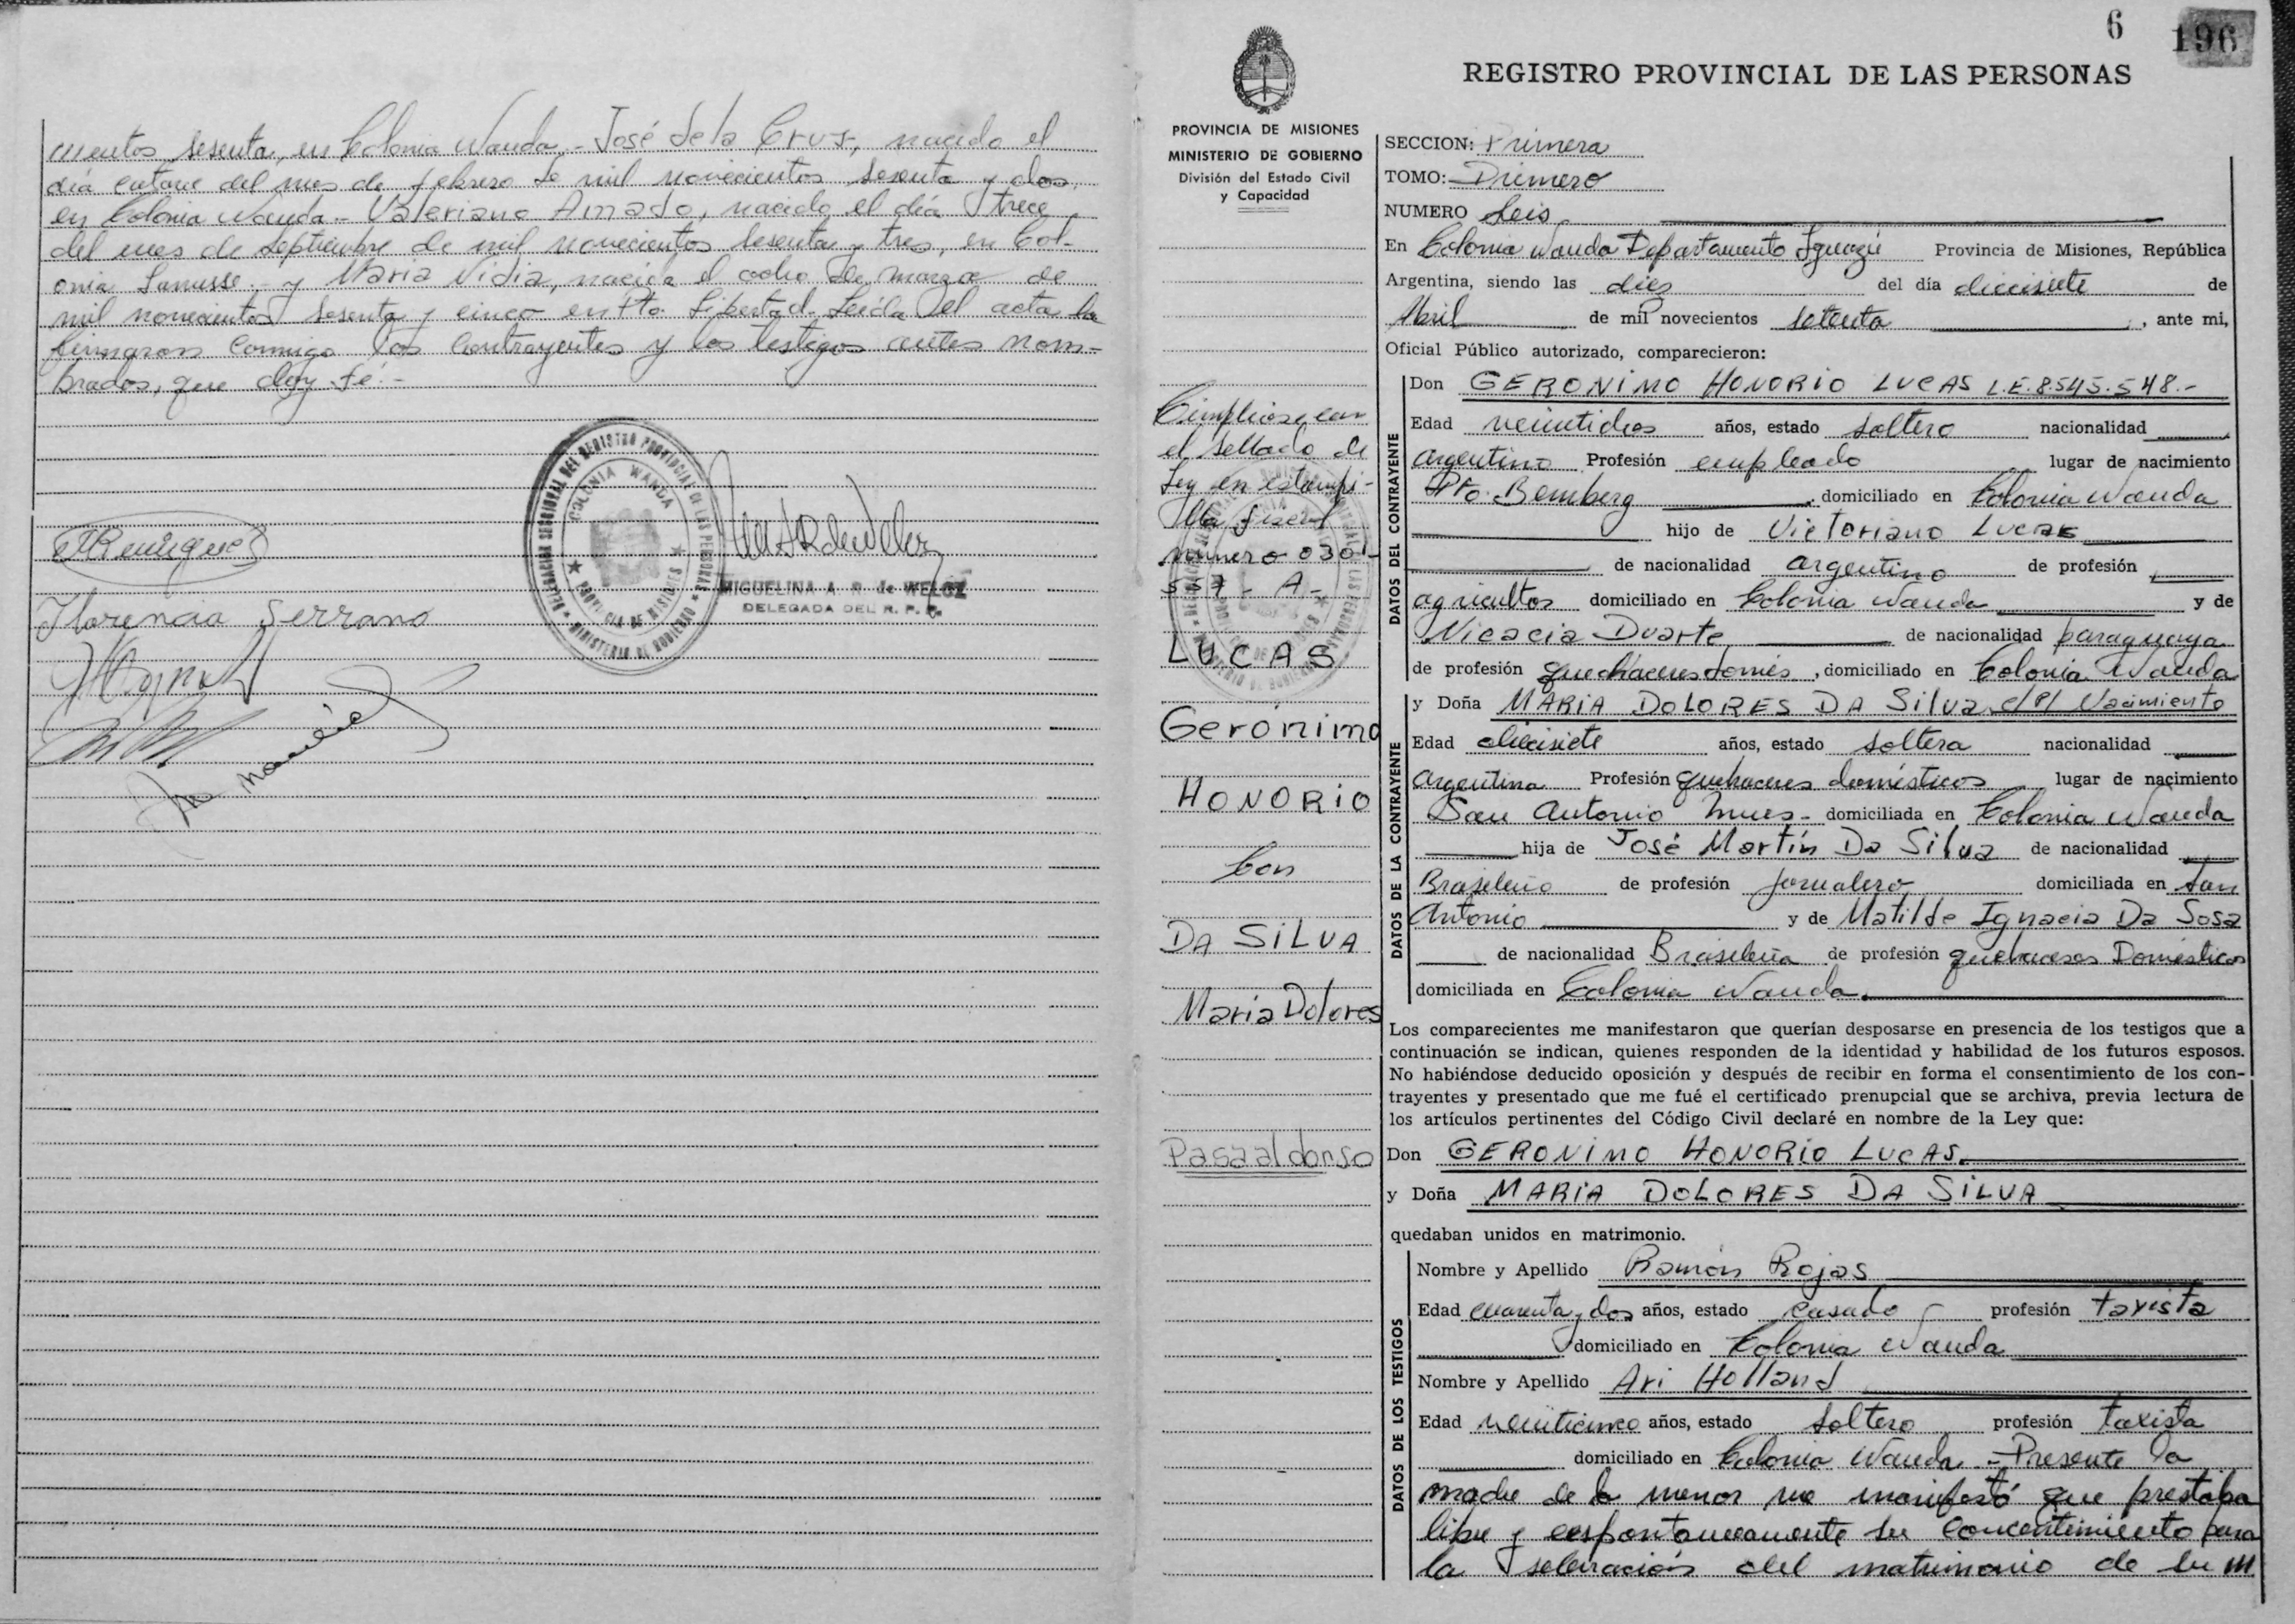 cientos sesenta, en Colonia Wanda.- José de la Cruz, nacido el
día catorce del mes de febrero de mil novecientos sesenta y dos,
en Colonia Wanda.- Valeriano Amado, nacido el día trece
del mes de septiembre de mil novecientos sesenta y tres, en Col-
onia Lanusse.- y Maria Nidia, nacida el ocho de marzo de
mil novecientos sesenta y cinco en Pto. Libertad. Leída el acta la
firmaron conmigo los contrayentes y los testigos antes nom-
brados, que doy fé.-
DELEGACION SECCIONAL DEL REGISTRO PROVINCIAL DE LAS PERSONAS
COLONIA WANDA
PROVINCIA DE MISIONES
MINISTERIO DE GOBIERNO
MIGUELINA A. R. de WELOZ
DELEGADA DEL R. P. P.
Florencia Serrano
6
196
REGISTRO PROVINCIAL DE LAS PERSONAS
PROVINCIA DE MISIONES
MINISTERIO DE GOBIERNO
División del Estado Civil
y Capacidad
Cumpliose con
el sellado de
Ley en estampi-
lla fiscal
número 0301-
557 - A -
LUCAS
Gerónimo
HONORIO
Con
DA SILVA
Maria Dolores
Pasa al dorso
SECCION: Primera
TOMO: Primero
NUMERO Seis
En Colonia Wanda Departamento Iguazú Provincia de Misiones, República
Argentina, siendo las diez del día diecisiete de
Abril de mil novecientos setenta, ante mi,
Oficial Público autorizado, comparecieron:
DATOS DEL CONTRAYENTE
Don GERONIMO HONORIO LUCAS L.E. 8.545.548.-
Edad veintidos años, estado soltero nacionalidad
argentino Profesión empleado lugar de nacimiento
Pto. Bemberg domiciliado en Colonia Wanda
hijo de Victoriano Lucas
de nacionalidad argentino de profesión
agricultor domiciliado en Colonia Wanda y de
Nicacia Duarte de nacionalidad paraguaya
de profesión quehaceres domés, domiciliado en Colonia Wanda
DATOS DE LA CONTRAYENTE
y Doña MARIA DOLORES DA SILVA c/P/ Nacimiento
Edad diecisiete años, estado soltera nacionalidad
argentina Profesión quehaceres domésticos lugar de nacimiento
San Antonio Mnes- domiciliada en Colonia Wanda
hija de José Martín Da Silva de nacionalidad
Brasileño de profesión jornalero domiciliada en San
Antonio y de Matilde Ignacia Da Sosa
de nacionalidad Brasileña de profesión quehaceres Domésticos
domiciliada en Colonia Wanda.
Los comparecientes me manifestaron que querían desposarse en presencia de los testigos que a
continuación se indican, quienes responden de la identidad y habilidad de los futuros esposos.
No habiéndose deducido oposición y después de recibir en forma el consentimiento de los con-
trayentes y presentado que me fué el certificado prenupcial que se archiva, previa lectura de
los artículos pertinentes del Código Civil declaré en nombre de la Ley que:
Don GERONIMO HONORIO LUCAS.
y Doña MARIA DOLORES DA SILVA
quedaban unidos en matrimonio.
DATOS DE LOS TESTIGOS
Nombre y Apellido Ramón Rojas
Edad cuarenta y dos años, estado casado profesión taxista
domiciliado en Colonia Wanda
Nombre y Apellido Ari Holland
Edad veinticinco años, estado soltero profesión taxista
domiciliado en Colonia Wanda.- Presente la
madre de la menor me manifestó que prestaba
libre y espontaneamente su concentimiento para
la selebración del matrimonio de su m